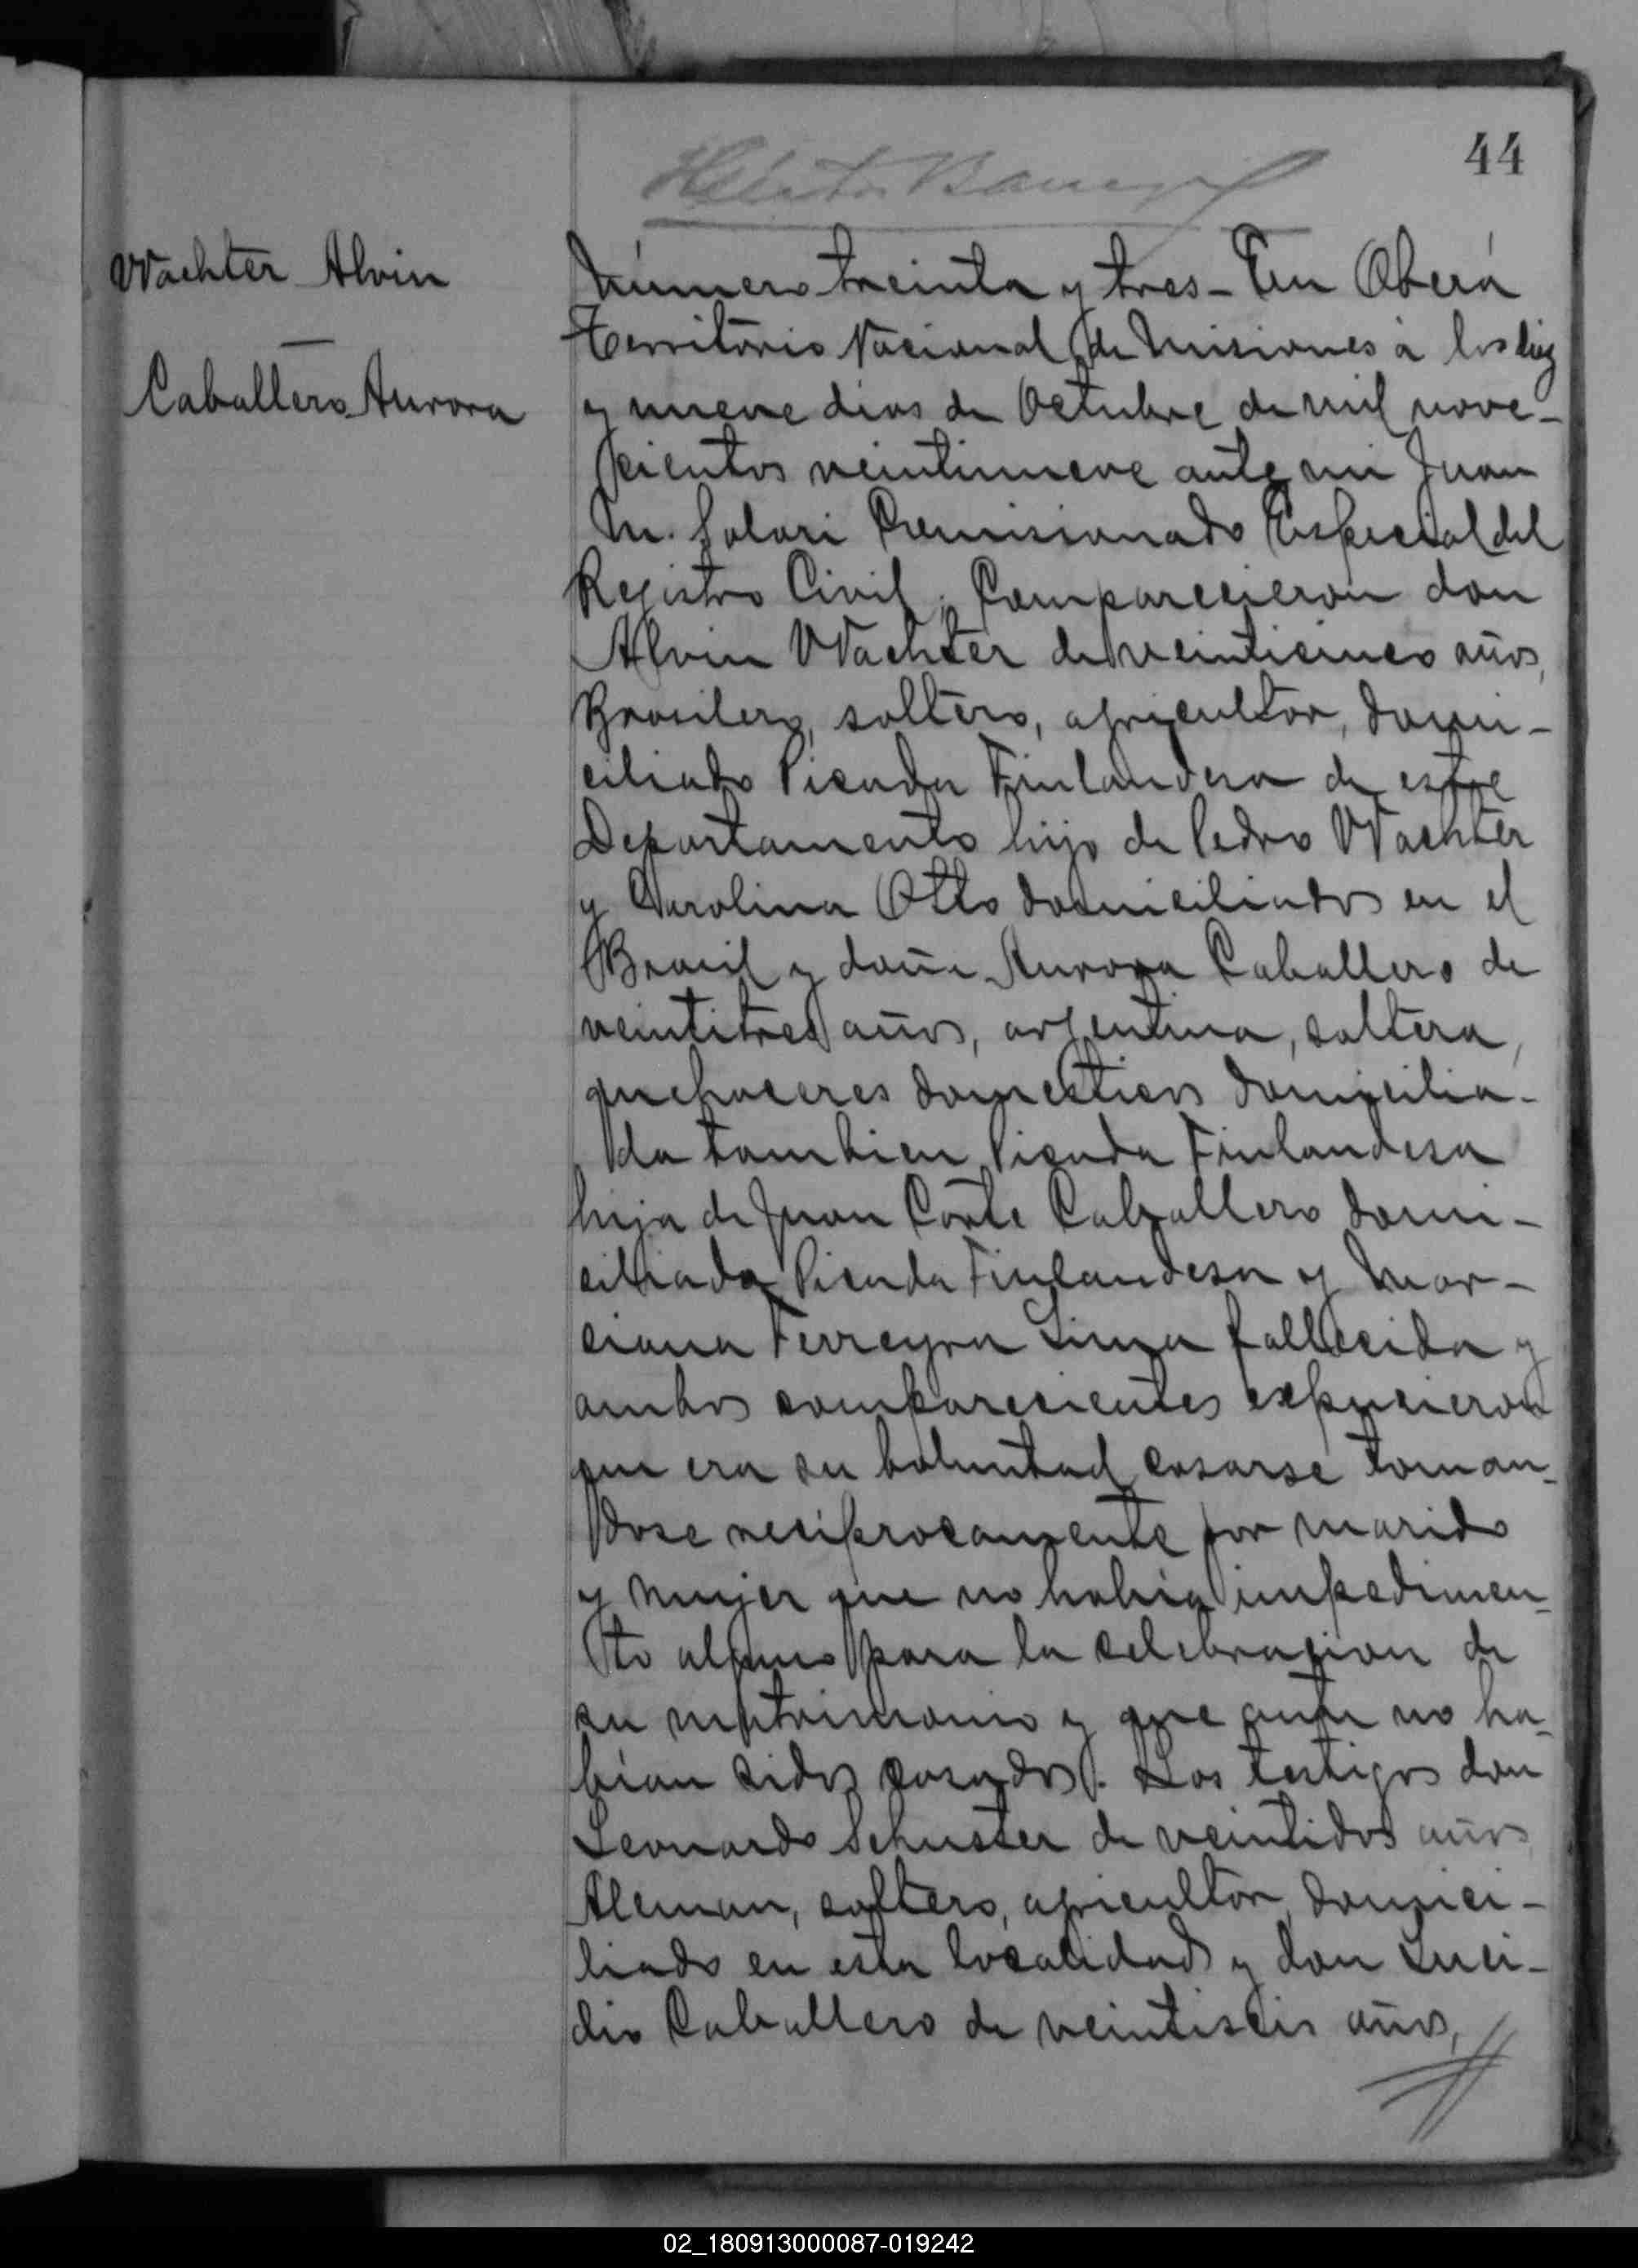 44
Héctor
Wachter Alvin
Caballero Aurora
Número treinta y tres - En Oberá
Territorio Nacional de Misiones á los diez
y nueve dias de Octubre de mil nove-
cientos veintinueve ante mi Juan
M. Solari Comisionado Especial del
Registro Civil; Comparecieron don
Alvin Wachter de veinticinco años,
Brasilero, soltero, agricultor, domi-
ciliado Picada Finlandesa de este
Departamento hijo de Pedro Wachter
y Carolina Otto domiciliados en el
Brasil y doña Aurora Caballero de
veintitres años, argentina, soltera,
quehaceres domesticos domicilia-
da tambien Picada Finlandesa
hija de Juan Corte Caballero domi-
ciliado Picada Finlandesa y Mar-
ciana Ferreyra Lima fallecida y
ambos comparecientes expucieron
que era su boluntad casarse toman-
dose reciprocamente por marido
y mujer que no habia impedimen-
to alguno para la celebracion de
su matrimonio y que antes no ha-
bían sidos casados. Los testigos don
Leonardo Schuster de veintidos años
Aleman, soltero, agricultor, domici-
liado en esta localidad y don Luci-
dio Caballero de veintiseis años,
02_180913000087-019242